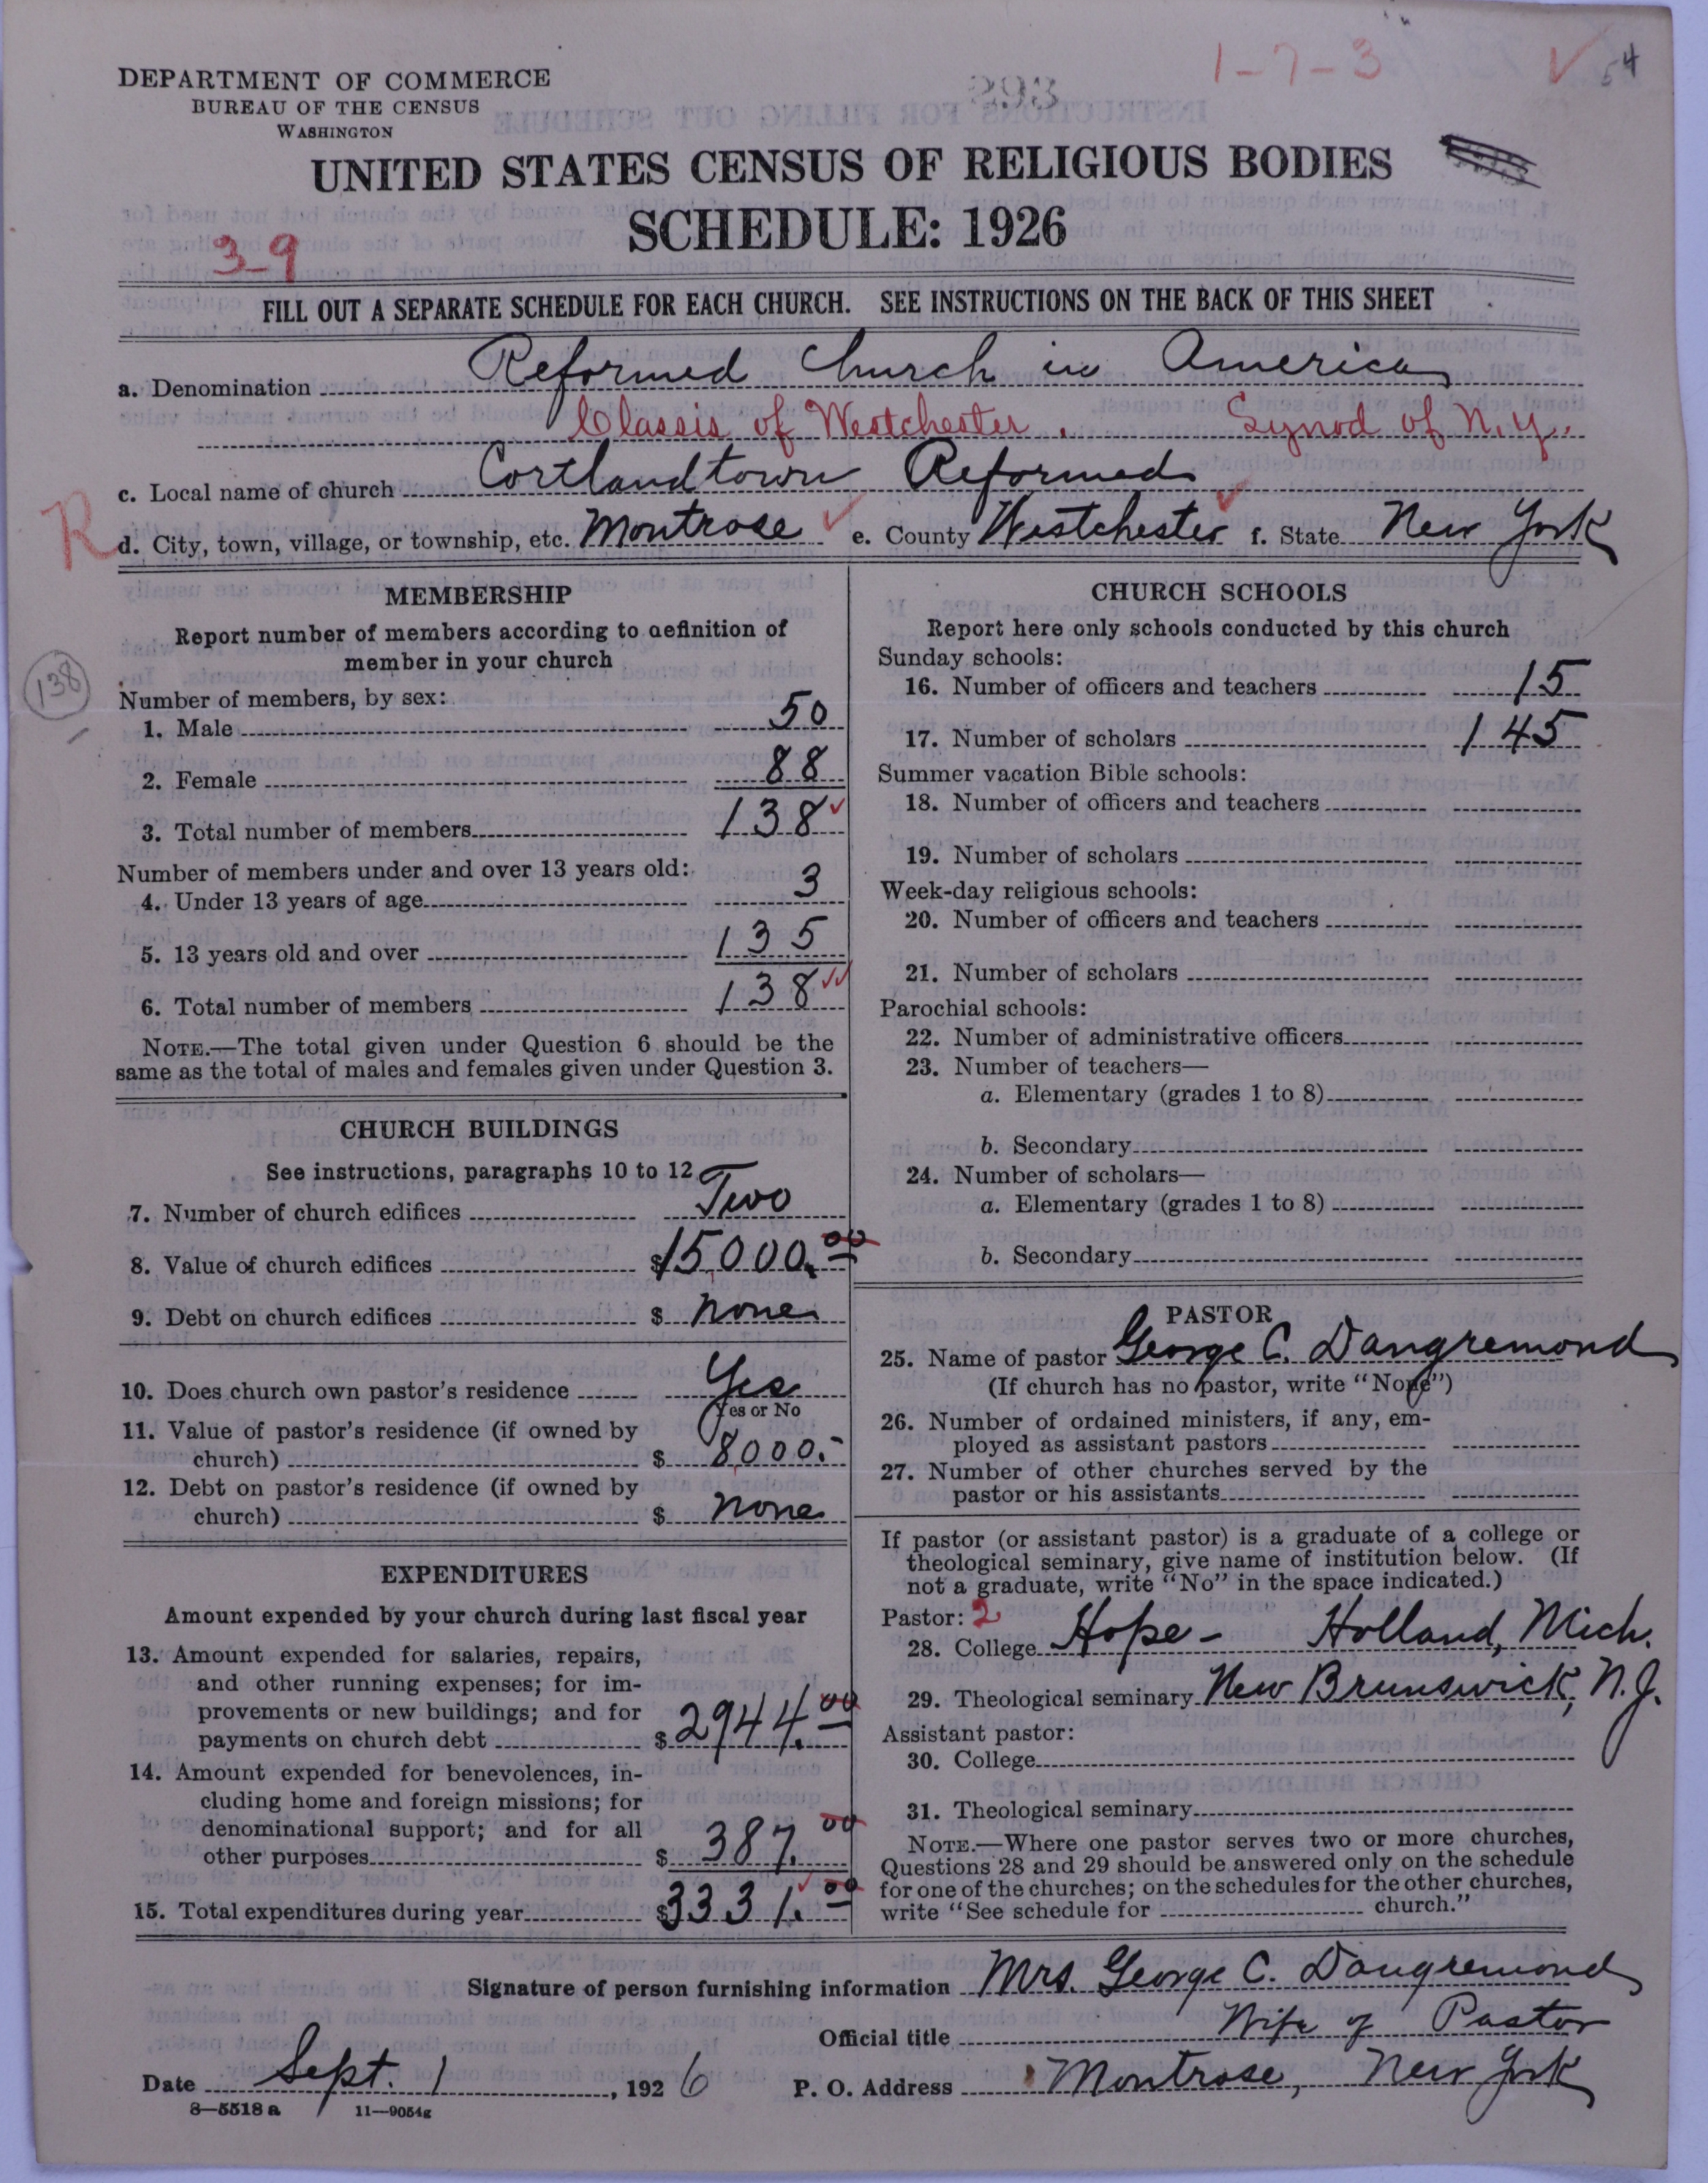 1-7-3 ✓ 54
293
DEPARTMENT OF COMMERCE
BUREAU OF THE CENSUS
WASHINGTON
UNITED STATES CENSUS OF RELIGIOUS BODIES
SCHEDULE: 1926
3-9
FILL OUT A SEPARATE SCHEDULE FOR EACH CHURCH. SEE INSTRUCTIONS ON THE BACK OF THIS SHEET
a. Denomination Reformed Church in America
Classis of Westchester. Synod of N.Y.
c. Local name of church Cortlandtown Reformed
R d. City, town, village, or township, etc. Montrose ✓ e. County Westchester ✓ f. State New York
MEMBERSHIP
Report number of members according to definition of
member in your church
138
Number of members, by sex:
1. Male 50
2. Female 88
3. Total number of members 138 ✓
Number of members under and over 13 years old:
4. Under 13 years of age 3
5. 13 years old and over 135
6. Total number of members 138 ✓✓
NOTE.—The total given under Question 6 should be the
same as the total of males and females given under Question 3.
CHURCH BUILDINGS
See instructions, paragraphs 10 to 12
7. Number of church edifices Two
8. Value of church edifices $15,000.00
9. Debt on church edifices $ none
10. Does church own pastor's residence Yes
Yes or No
11. Value of pastor's residence (if owned by
church) $ 8000.-
12. Debt on pastor's residence (if owned by
church) $ none
EXPENDITURES
Amount expended by your church during last fiscal year
13. Amount expended for salaries, repairs,
and other running expenses; for im-
provements or new buildings; and for
payments on church debt $ 2944.00
14. Amount expended for benevolences, in-
cluding home and foreign missions; for
denominational support; and for all
other purposes $ 387.00
15. Total expenditures during year $3331.00
CHURCH SCHOOLS
Report here only schools conducted by this church
Sunday schools:
16. Number of officers and teachers 15
17. Number of scholars 145
Summer vacation Bible schools:
18. Number of officers and teachers
19. Number of scholars
Week-day religious schools:
20. Number of officers and teachers
21. Number of scholars
Parochial schools:
22. Number of administrative officers
23. Number of teachers—
a. Elementary (grades 1 to 8)
b. Secondary
24. Number of scholars—
a. Elementary (grades 1 to 8)
b. Secondary
PASTOR
25. Name of pastor George C. Dangremond
(If church has no pastor, write "None")
26. Number of ordained ministers, if any, em-
ployed as assistant pastors
27. Number of other churches served by the
pastor or his assistants
If pastor (or assistant pastor) is a graduate of a college or
theological seminary, give name of institution below. (If
not a graduate, write "No" in the space indicated.)
Pastor: 2
28. College Hope - Holland, Mich.
29. Theological seminary New Brunswick, N.J.
Assistant pastor:
30. College
31. Theological seminary
NOTE.—Where one pastor serves two or more churches,
Questions 28 and 29 should be answered only on the schedule
for one of the churches; on the schedules for the other churches,
write "See schedule for church."
Signature of person furnishing information Mrs. George C. Dangremond
Official title Wife of Pastor
Date Sept. 1, 1926 P. O. Address Montrose, New York
8—5518 a 11—9054g